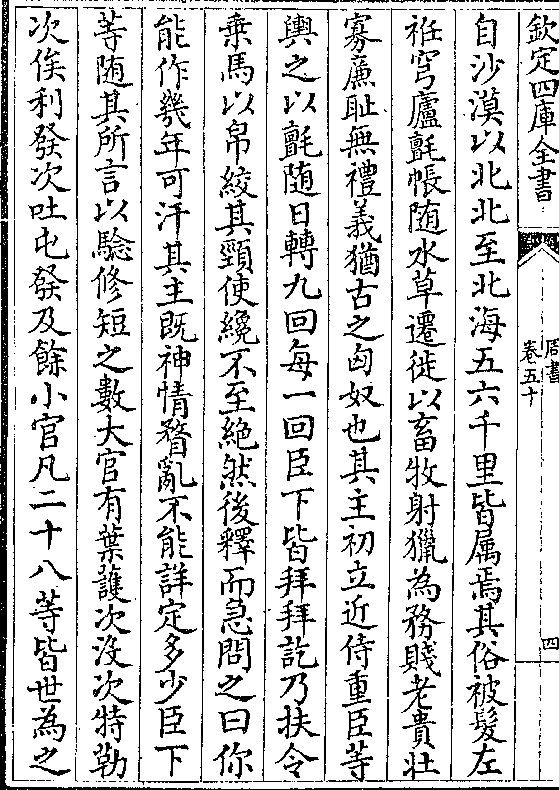 欽定四庫全書
周書
卷五十
四
自沙漠以北北至北海五六千里皆属焉其俗被髮左
袵穹廬氈帳随水草遷徙以畜牧射獵為務賤老貴壯
寡廉耻無禮義猶古之匈奴也其主初立近侍重臣等
輿之以氈随日轉九回每一回臣下皆拜拜訖乃扶令
乗馬以帛絞其頸使纔不至絶然後釋而急問之曰你
能作幾年可汗其主既神情瞀亂不能詳定多少臣下
等随其所言以驗修短之數大官有葉護次沒次特勒
次俟利發次吐屯發及餘小官凡二十八等皆世為之